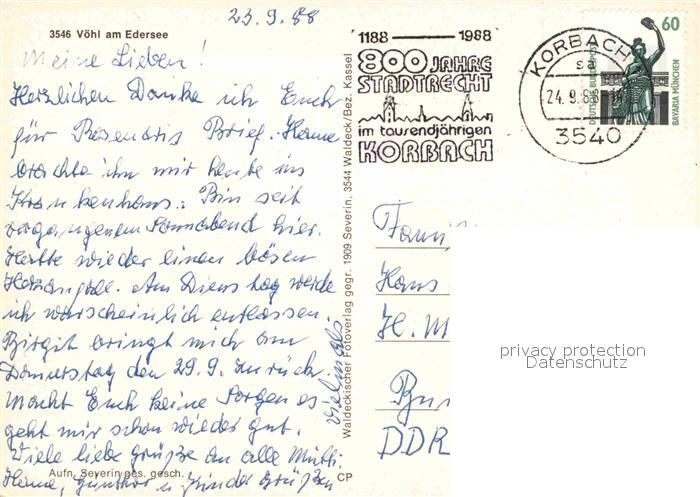 23.9.88
3546 Vöhl am Edersee
Meine Lieben!
Herzlichen Danke ich Euch
für Brief. Hanne
brachte ihn mir heute ins
Krankenhaus. Bin seit
vergangenem Sonnabend hier.
Hatte wieder einen bösen
Herzanfall. Am Dienstag werde
ich warscheinlich entlassen.
Birgit bringt mich am
Donnerstag den 29.9. zurück.
Macht Euch keine Sorgen es
geht mir schon wieder gut.
Viele liebe Grüße an alle Mutti
Hanne, Günther u Kinder Grüßen
vielmals
Aufn. Severin ges. gesch.
CP
Waldeckischer Fotoverlag gegr. 1909 Severin, 3544 Waldeck/Bez. Kassel
1188 1988
800 JAHRE
STADTRECHT
im tausendjährigen
KORBACH
KORBACH
sa
24.9.88
3540
60
DEUTSCHE BUNDESPOST
BAVARIA MÜNCHEN
Fam
Hans
H. M
DDR
privacy protection
Datenschutz